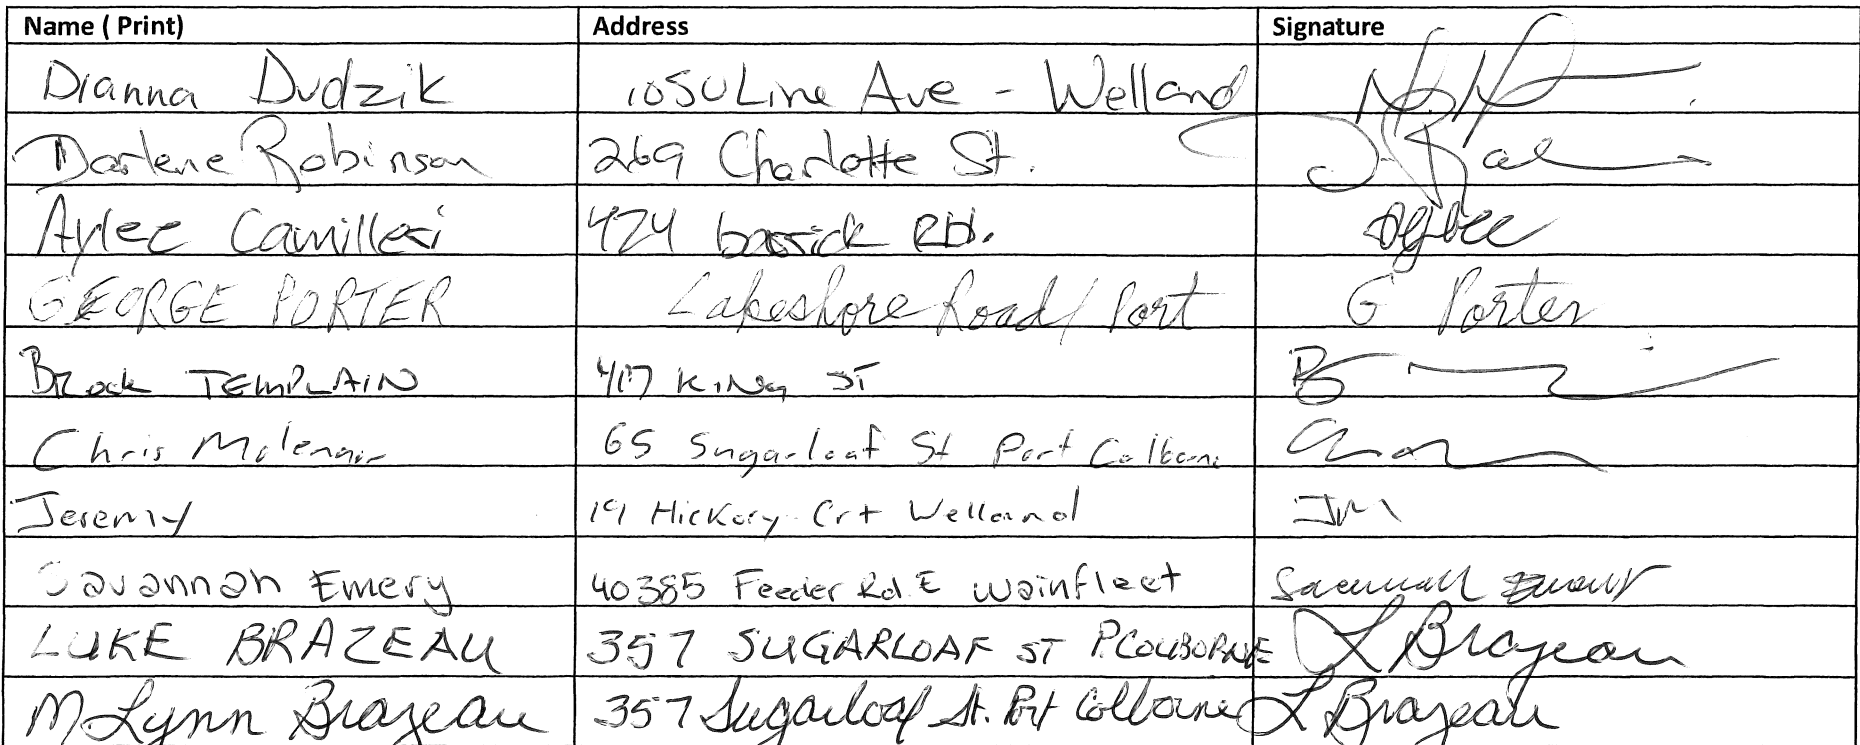 Name ( Print) Address Signature
Dianna Dudzik 1050 Line Ave - Welland
Darlene Robinson 269 Charlotte St.
Aylee Camilleri 424 barrick RD. Aylee
GEORGE PORTER Lakeshore Road/ Port G Porter
Brock TEMPLAIN 417 KING ST
Chris Molenaar 65 Sugarloaf St Port Colborne
Jeremy 19 Hickory Crt Welland JM
Savannah Emery 40385 Feeder Rd E Wainfleet Savannah Emery
LUKE BRAZEAU 357 SUGARLOAF ST P.COLBORNE L Brazeau
M Lynn Brazeau 357 Sugarloaf St. Port Colborne L Brazeau